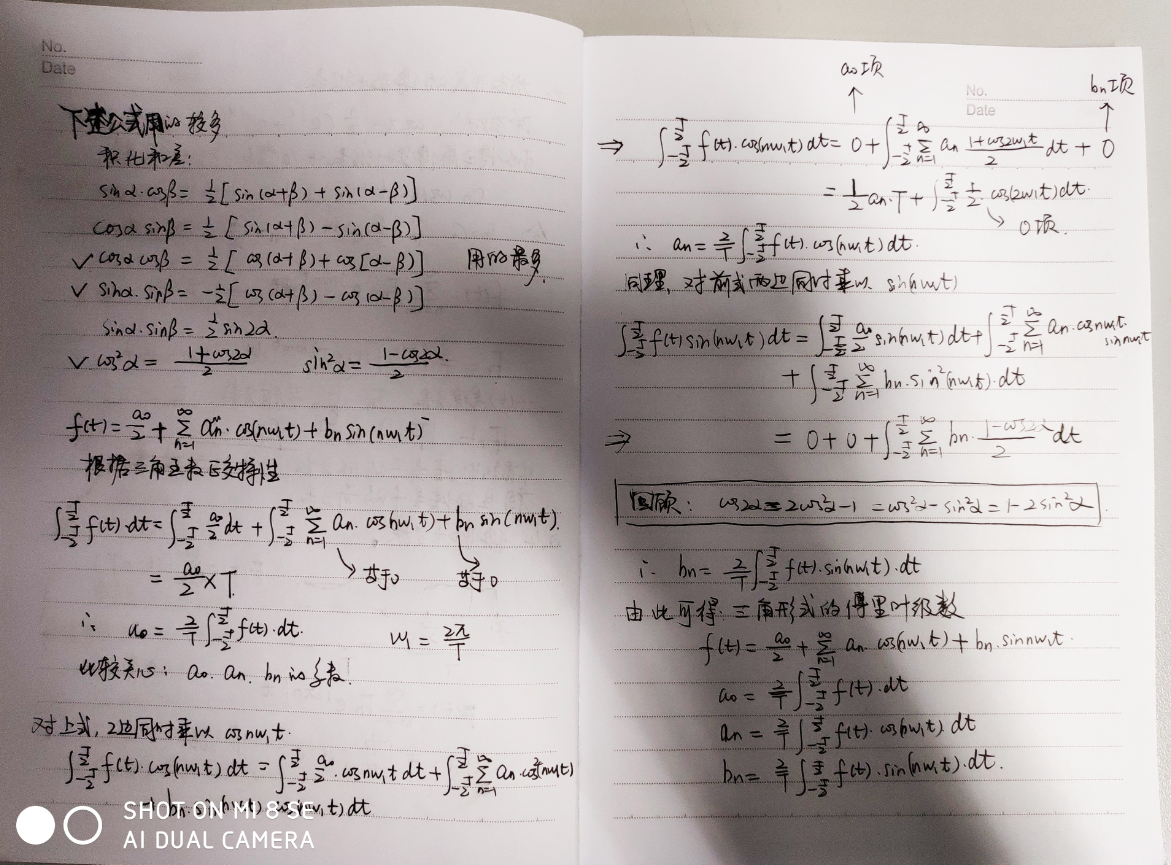 No.
Date
下述公式用的较多
积化和差:
sinα·cosβ = 1/2[sin(α+β) + sin(α-β)]
cosα sinβ = 1/2[sin(α+β) - sin(α-β)]
✓ cosα cosβ = 1/2[cos(α+β) + cos(α-β)] 用的最多
✓ sinα·sinβ = -1/2[cos(α+β) - cos(α-β)]
sinα·sinβ = 1/2 sin2α
✓ cos²α = (1+cos2α)/2 sin²α = (1-cos2α)/2.
f(t) = a₀/2 + ∑_{n=1}^{∞} aₙ·cos(nω₁t) + bₙ sin(nω₁t)
根据三角函数正交特性
∫_{-T/2}^{T/2} f(t)·dt = ∫_{-T/2}^{T/2} a₀/2 dt + ∫_{-T/2}^{T/2} ∑_{n=1}^{∞} aₙ·cos(nω₁t) + bₙ sin(nω₁t).
= a₀/2 × T 等于0 等于0
∴ a₀ = 2/T ∫_{-T/2}^{T/2} f(t)·dt. ω₁ = 2π/T
比较关心: a₀. aₙ. bₙ 的系数.
对上式, 2边同时乘以 cosnω₁t.
∫_{-T/2}^{T/2} f(t)·cos(nω₁t) dt = ∫_{-T/2}^{T/2} a₀/2·cosnω₁t dt + ∫_{-T/2}^{T/2} ∑_{n=1}^{∞} aₙ·cos²(nω₁t)
+ bₙ·sin(nω₁t)·cos(nω₁t) dt
SHOT ON MI 8 SE
AI DUAL CAMERA
a₀项 bₙ项
No.
Date
⇒ ∫_{-T/2}^{T/2} f(t)·cos(nω₁t) dt = 0 + ∫_{-T/2}^{T/2} ∑_{n=1}^{∞} aₙ (1+cos2ω₁t)/2 dt + 0
= 1/2 aₙ·T + ∫_{-T/2}^{T/2} 1/2 cos(2ω₁t) dt.
0项.
∴ aₙ = 2/T ∫_{-T/2}^{T/2} f(t)·cos(nω₁t) dt.
同理, 对前式两边同时乘以 sin(nω₁t)
∫_{-T/2}^{T/2} f(t) sin(nω₁t) dt = ∫_{-T/2}^{T/2} a₀/2 sin(nω₁t) dt + ∫_{-T/2}^{T/2} ∑_{n=1}^{∞} aₙ·cosnω₁t·
sinnω₁t
+ ∫_{-T/2}^{T/2} ∑_{n=1}^{∞} bₙ·sin²(nω₁t)·dt
⇒ = 0 + 0 + ∫_{-T/2}^{T/2} ∑_{n=1}^{∞} bₙ·(1-cos2α)/2 dt
回顾: cos2α = 2cos²α-1 = cos²α-sin²α = 1-2sin²α.
∴ bₙ = 2/T ∫_{-T/2}^{T/2} f(t)·sin(nω₁t)·dt
由此可得, 三角形式的傅里叶级数
f(t) = a₀/2 + ∑_{n=1}^{∞} aₙ·cos(nω₁t) + bₙ·sinnω₁t.
a₀ = 2/T ∫_{-T/2}^{T/2} f(t)·dt
aₙ = 2/T ∫_{-T/2}^{T/2} f(t)·cos(nω₁t) dt
bₙ = 2/T ∫_{-T/2}^{T/2} f(t)·sin(nω₁t)·dt.